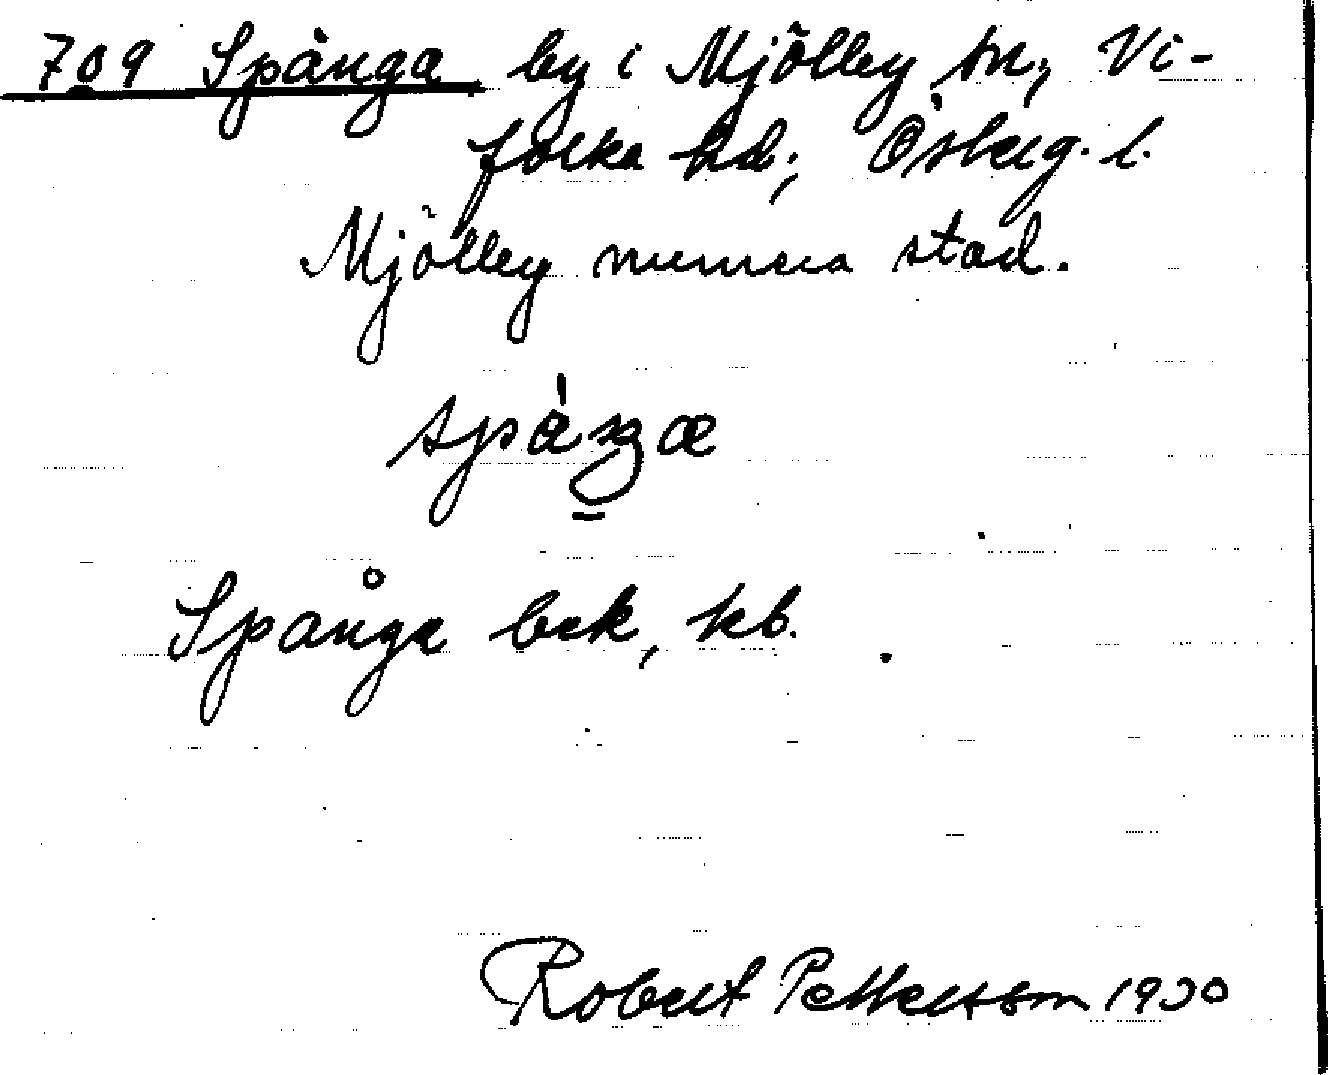 709 Spånga by i Mjölby sn, Vi-
folka hd; Österg. l.
Mjölby numera stad.
Spånga bek, kb.
Robert Pettersson 1930